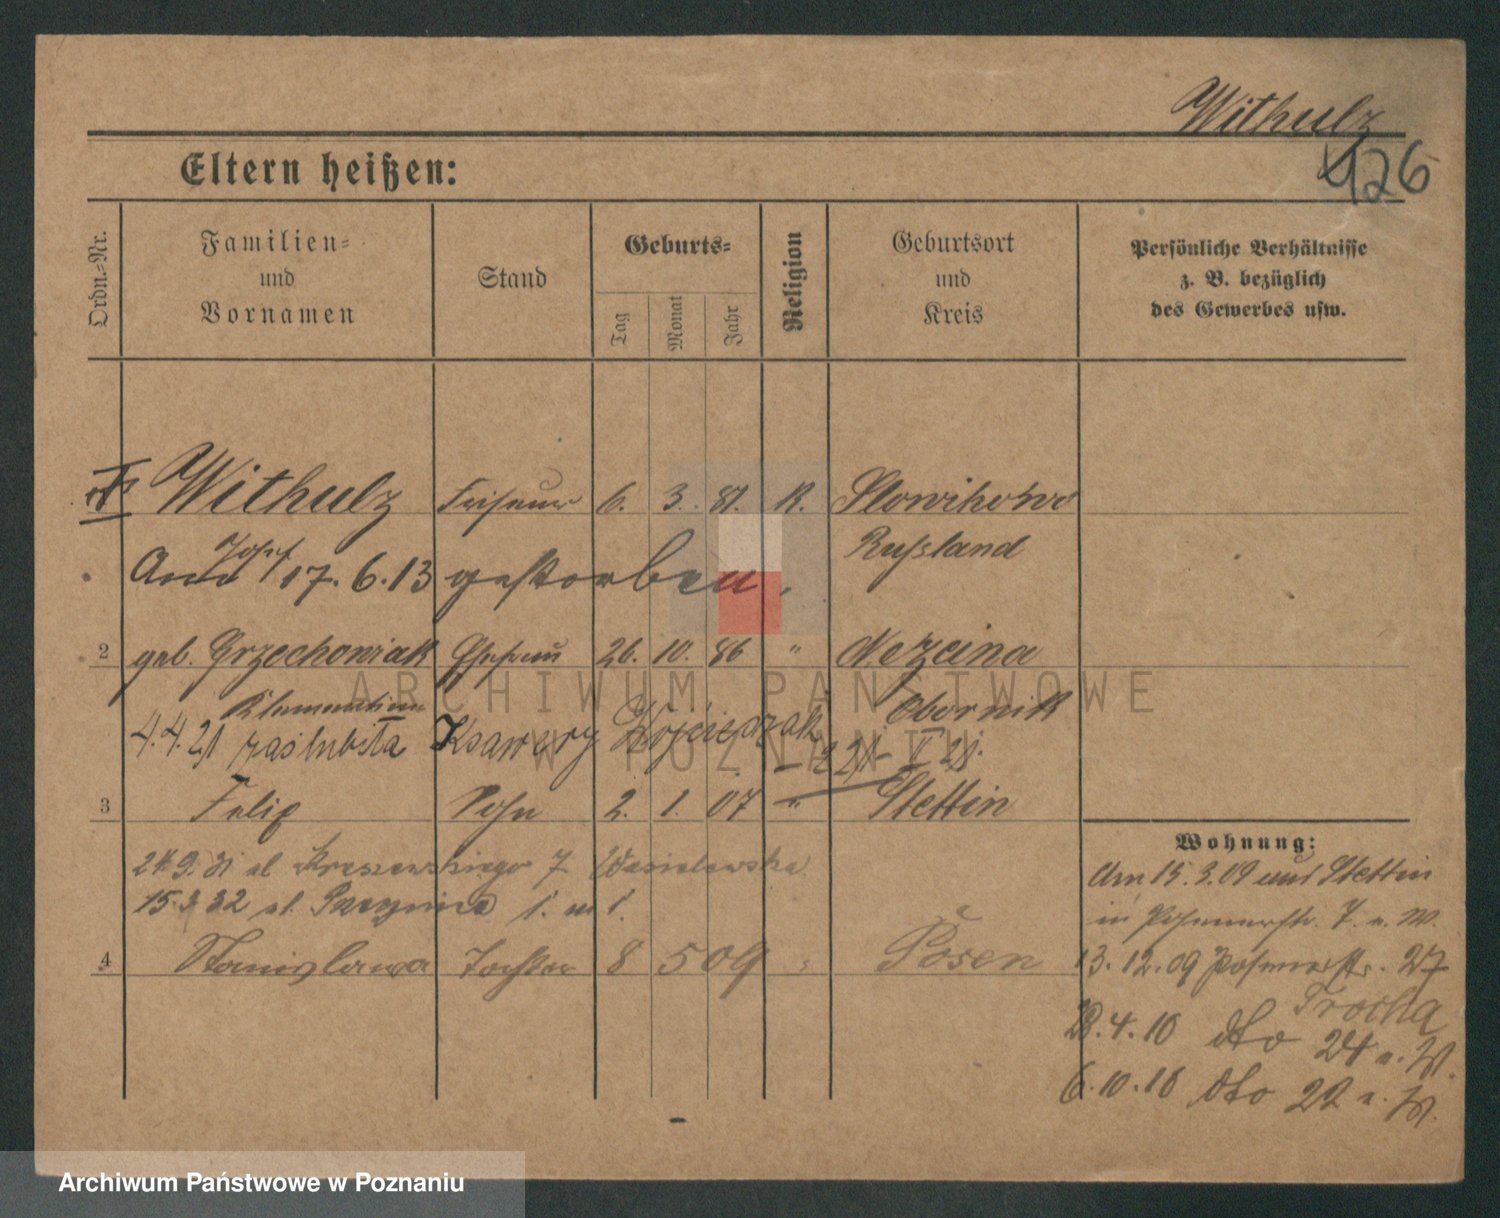 Withulz
426
Eltern heißen:
Ordn.-Nr.
Familien-
und
Vornamen
Stand
Geburts-
Tag
Monat
Jahr
Religion
Geburtsort
und
Kreis
Persönliche Verhältnisse
z. B. bezüglich
des Gewerbes usw.
Withulz Friseur 6. 3. 81. K. Slowikowo
Josef Russland
Am 17. 6. 13 gestorben.
2 geb. Grzechowiak Ehefrau 26. 10. 86 "
Klementine Obornik
4. 4. 21 zaślubiła Ksawery Wojcieszak
3 Felix Sohn 2. 1. 07 " Stettin
24.9.31 ul Kraszewskiego 7 Wasielewska
15.3.32 ul.
4 Stanislawa Tochter 8 5 09 Posen
Wohnung:
Am 15.3.09 aus Stettin
in Posenerstr. 7. b. W.
13.12.09 Posenerstr. 27
Trocha
28.4.10 dto 24 b. W.
6.10.10 dto 22 b. W.
ARCHIWUM PAŃSTWOWE
W POZNANIU
Archiwum Państwowe w Poznaniu